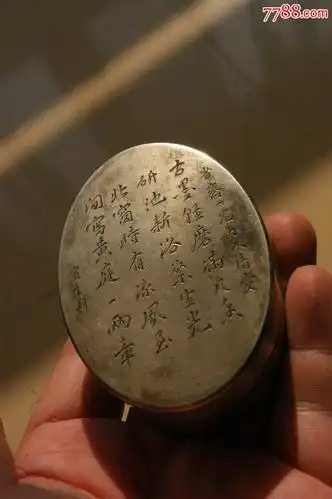 7788.com
古墨輕磨滿几香
研池新浴粲生光
北窗時有凉風至
间寫黄庭一兩章